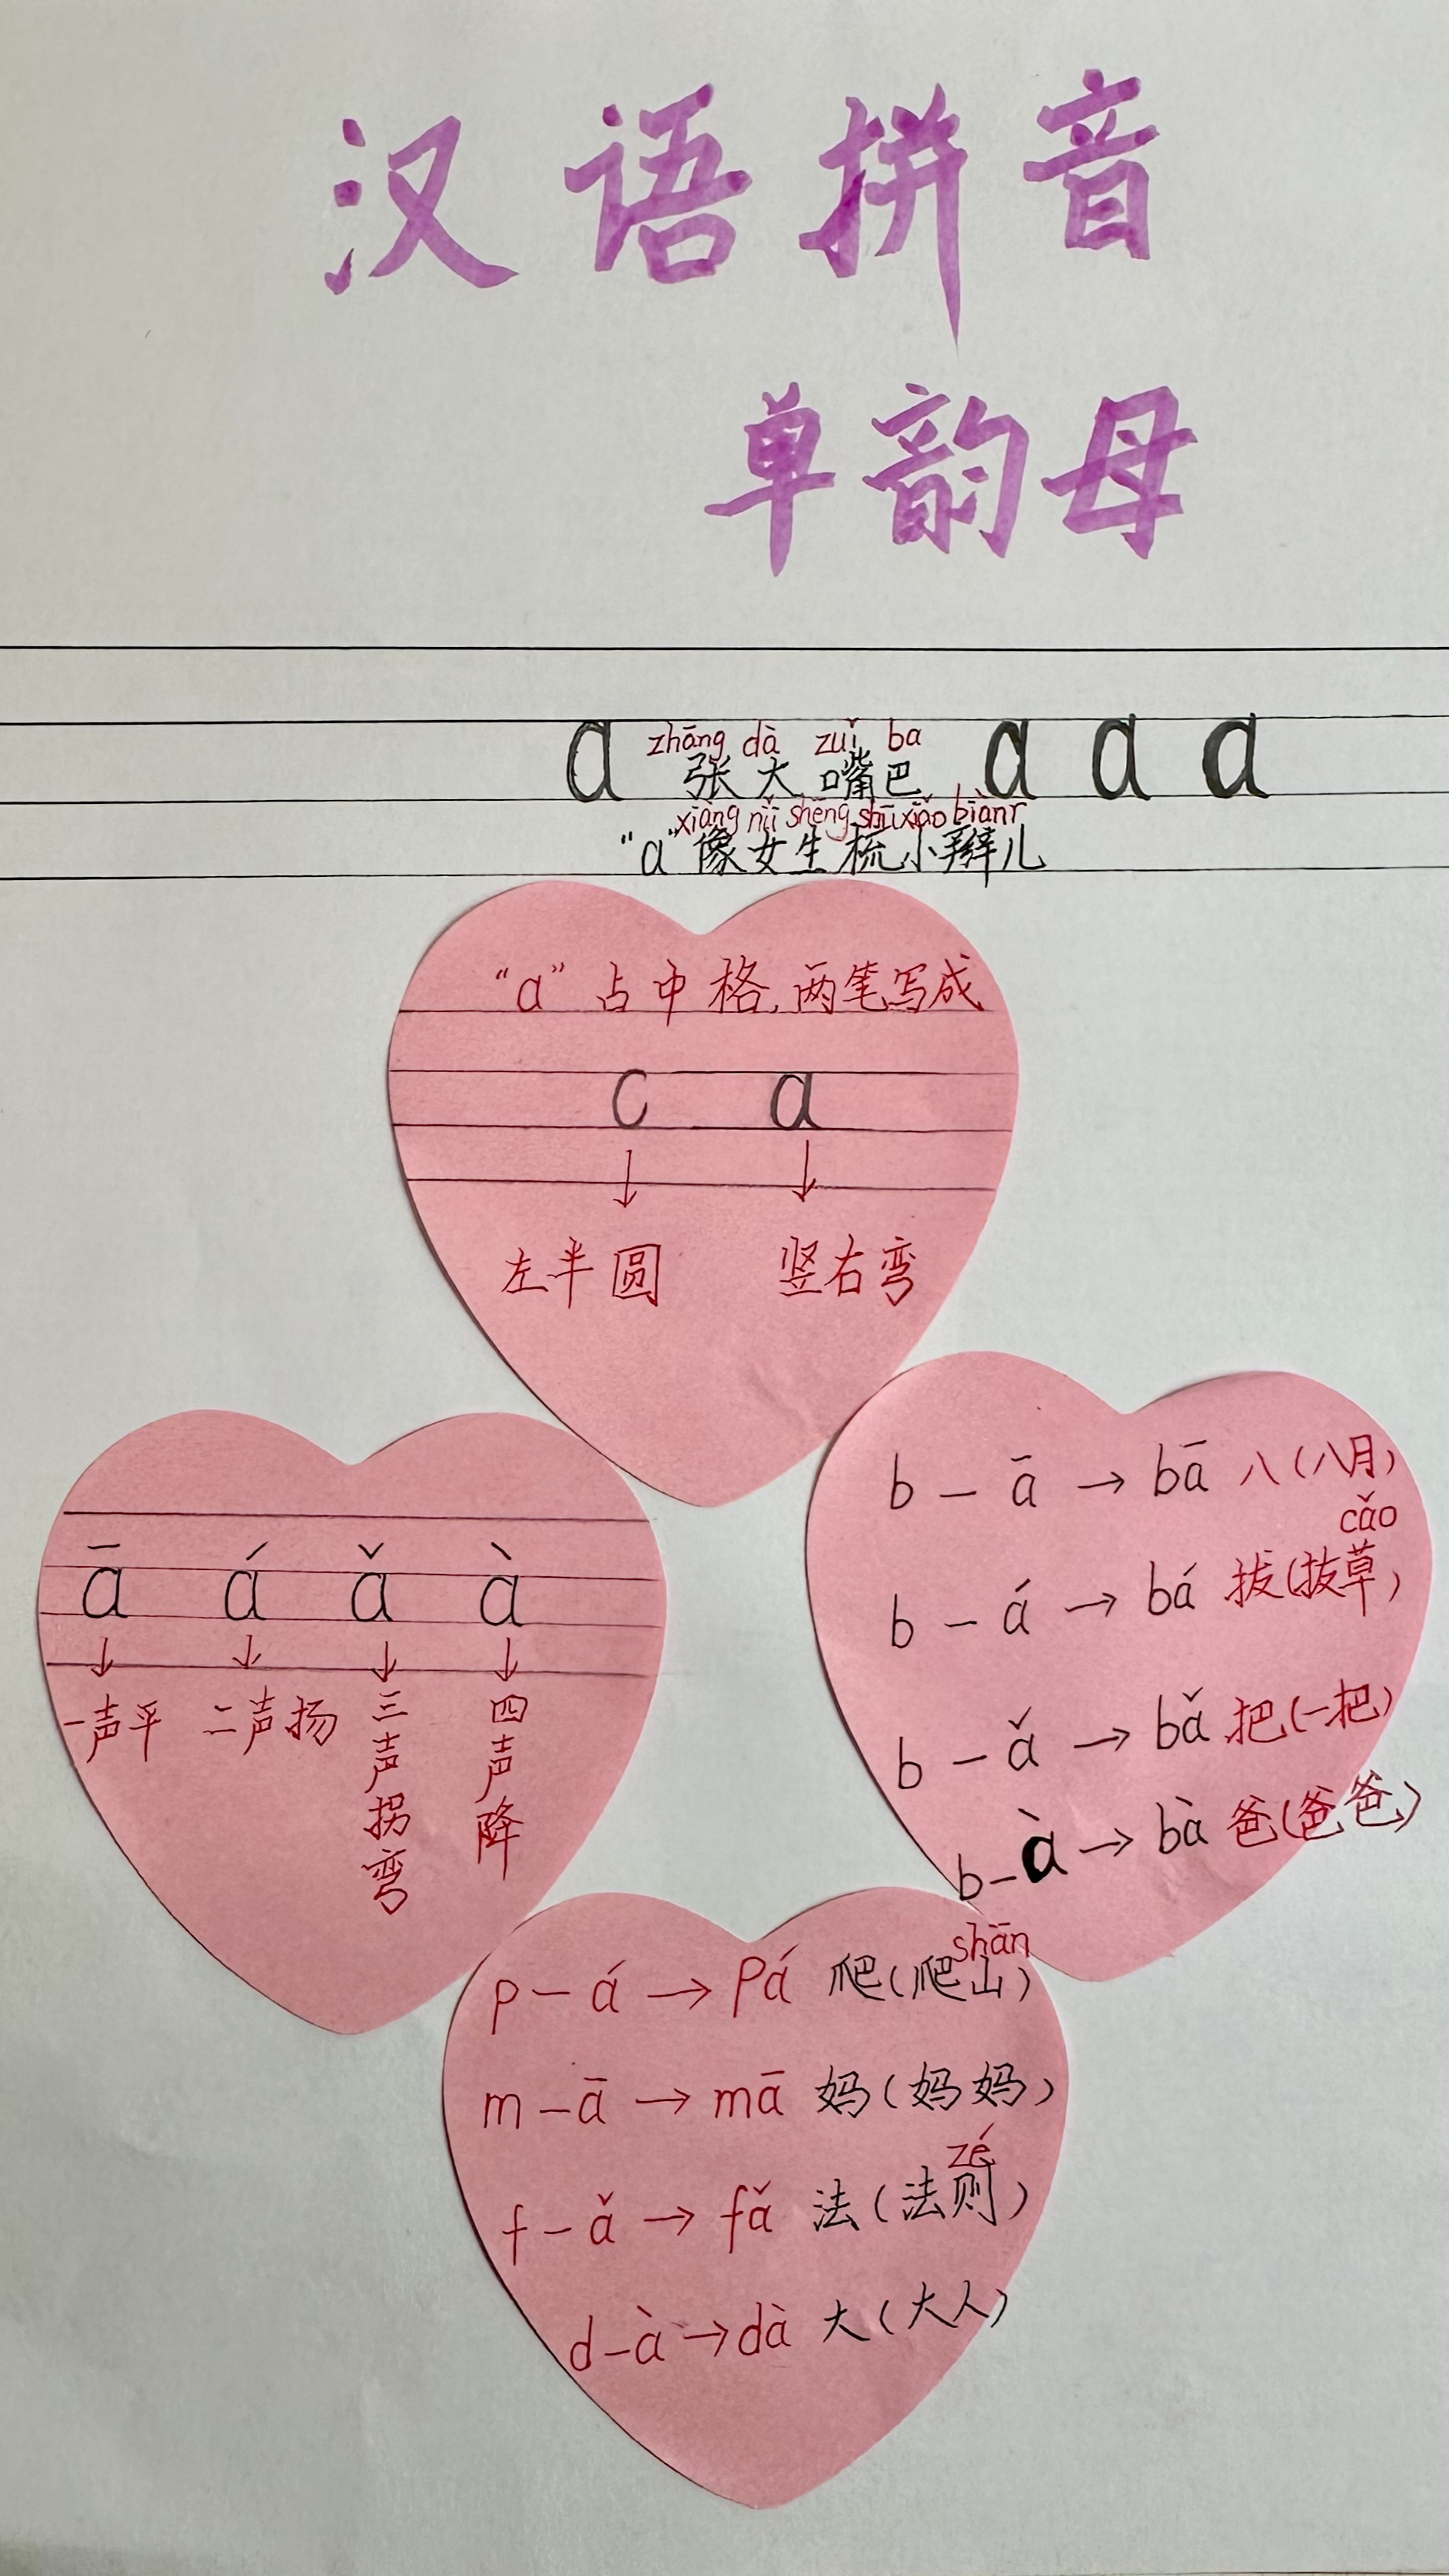 汉语拼音
单韵母
zhāng dà zuǐ ba
a 张大嘴巴 a a a
xiàng nǚ shēng shū xiǎo biànr
“a”像女生梳小辫儿
“a”占中格,两笔写成
c a
↓ ↓
左半圆 竖右弯
ā á ǎ à
↓ ↓ ↓ ↓
一声平 二声扬 三声拐弯 四声降
b - ā → bā 八(八月)
cǎo
b - á → bá 拔(拔草)
b - ǎ → bǎ 把(一把)
b - à → bà 爸(爸爸)
shān
p - á → pá 爬(爬山)
m - ā → mā 妈(妈妈)
zé
f - ǎ → fǎ 法(法则)
d - à → dà 大(大人)